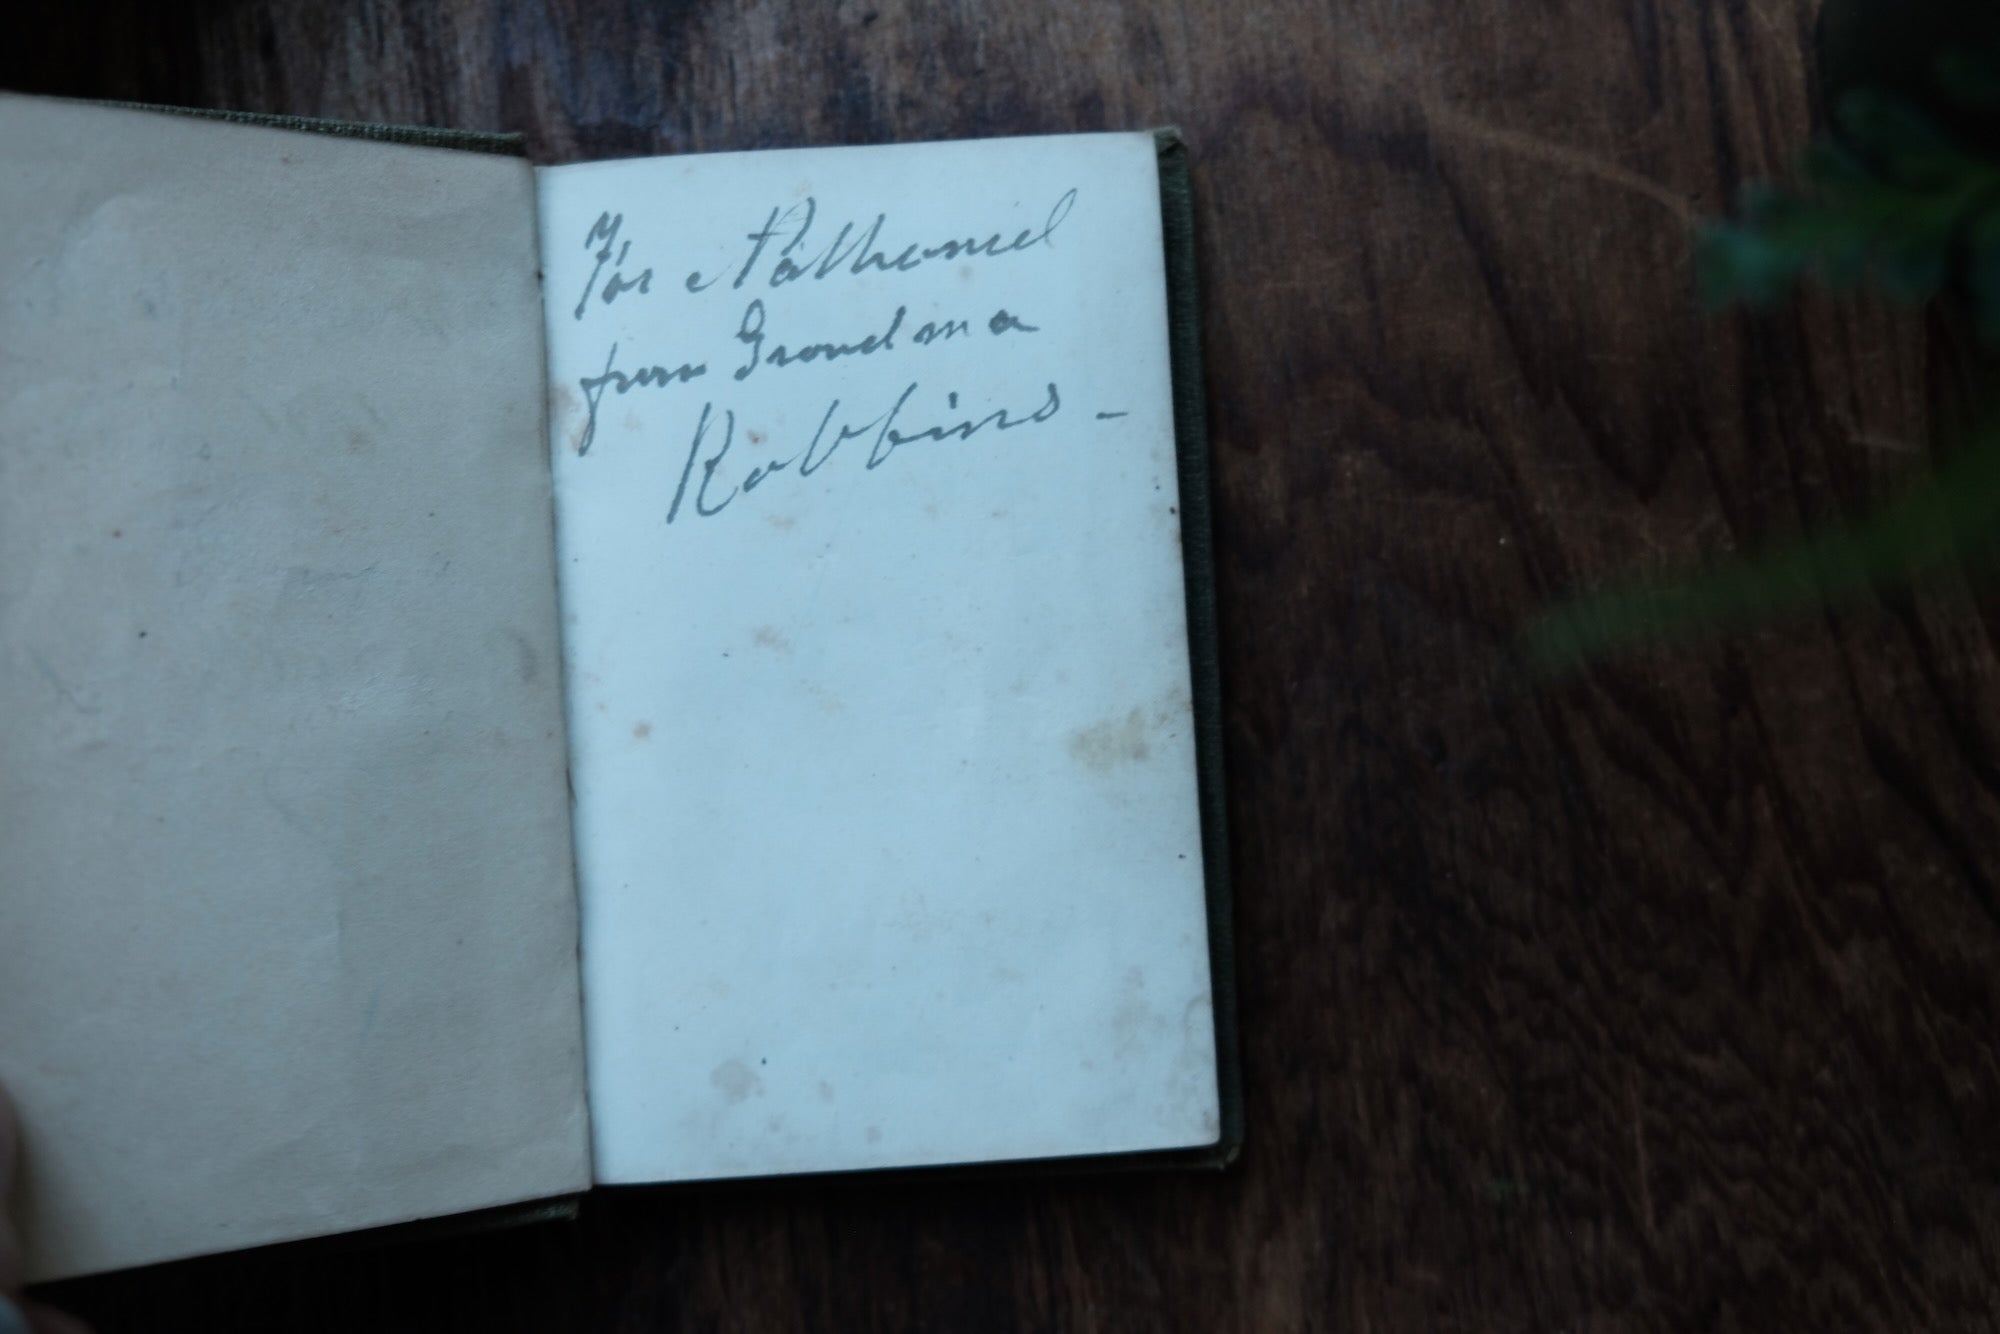 For Nathaniel
from Grandma
Robbins -